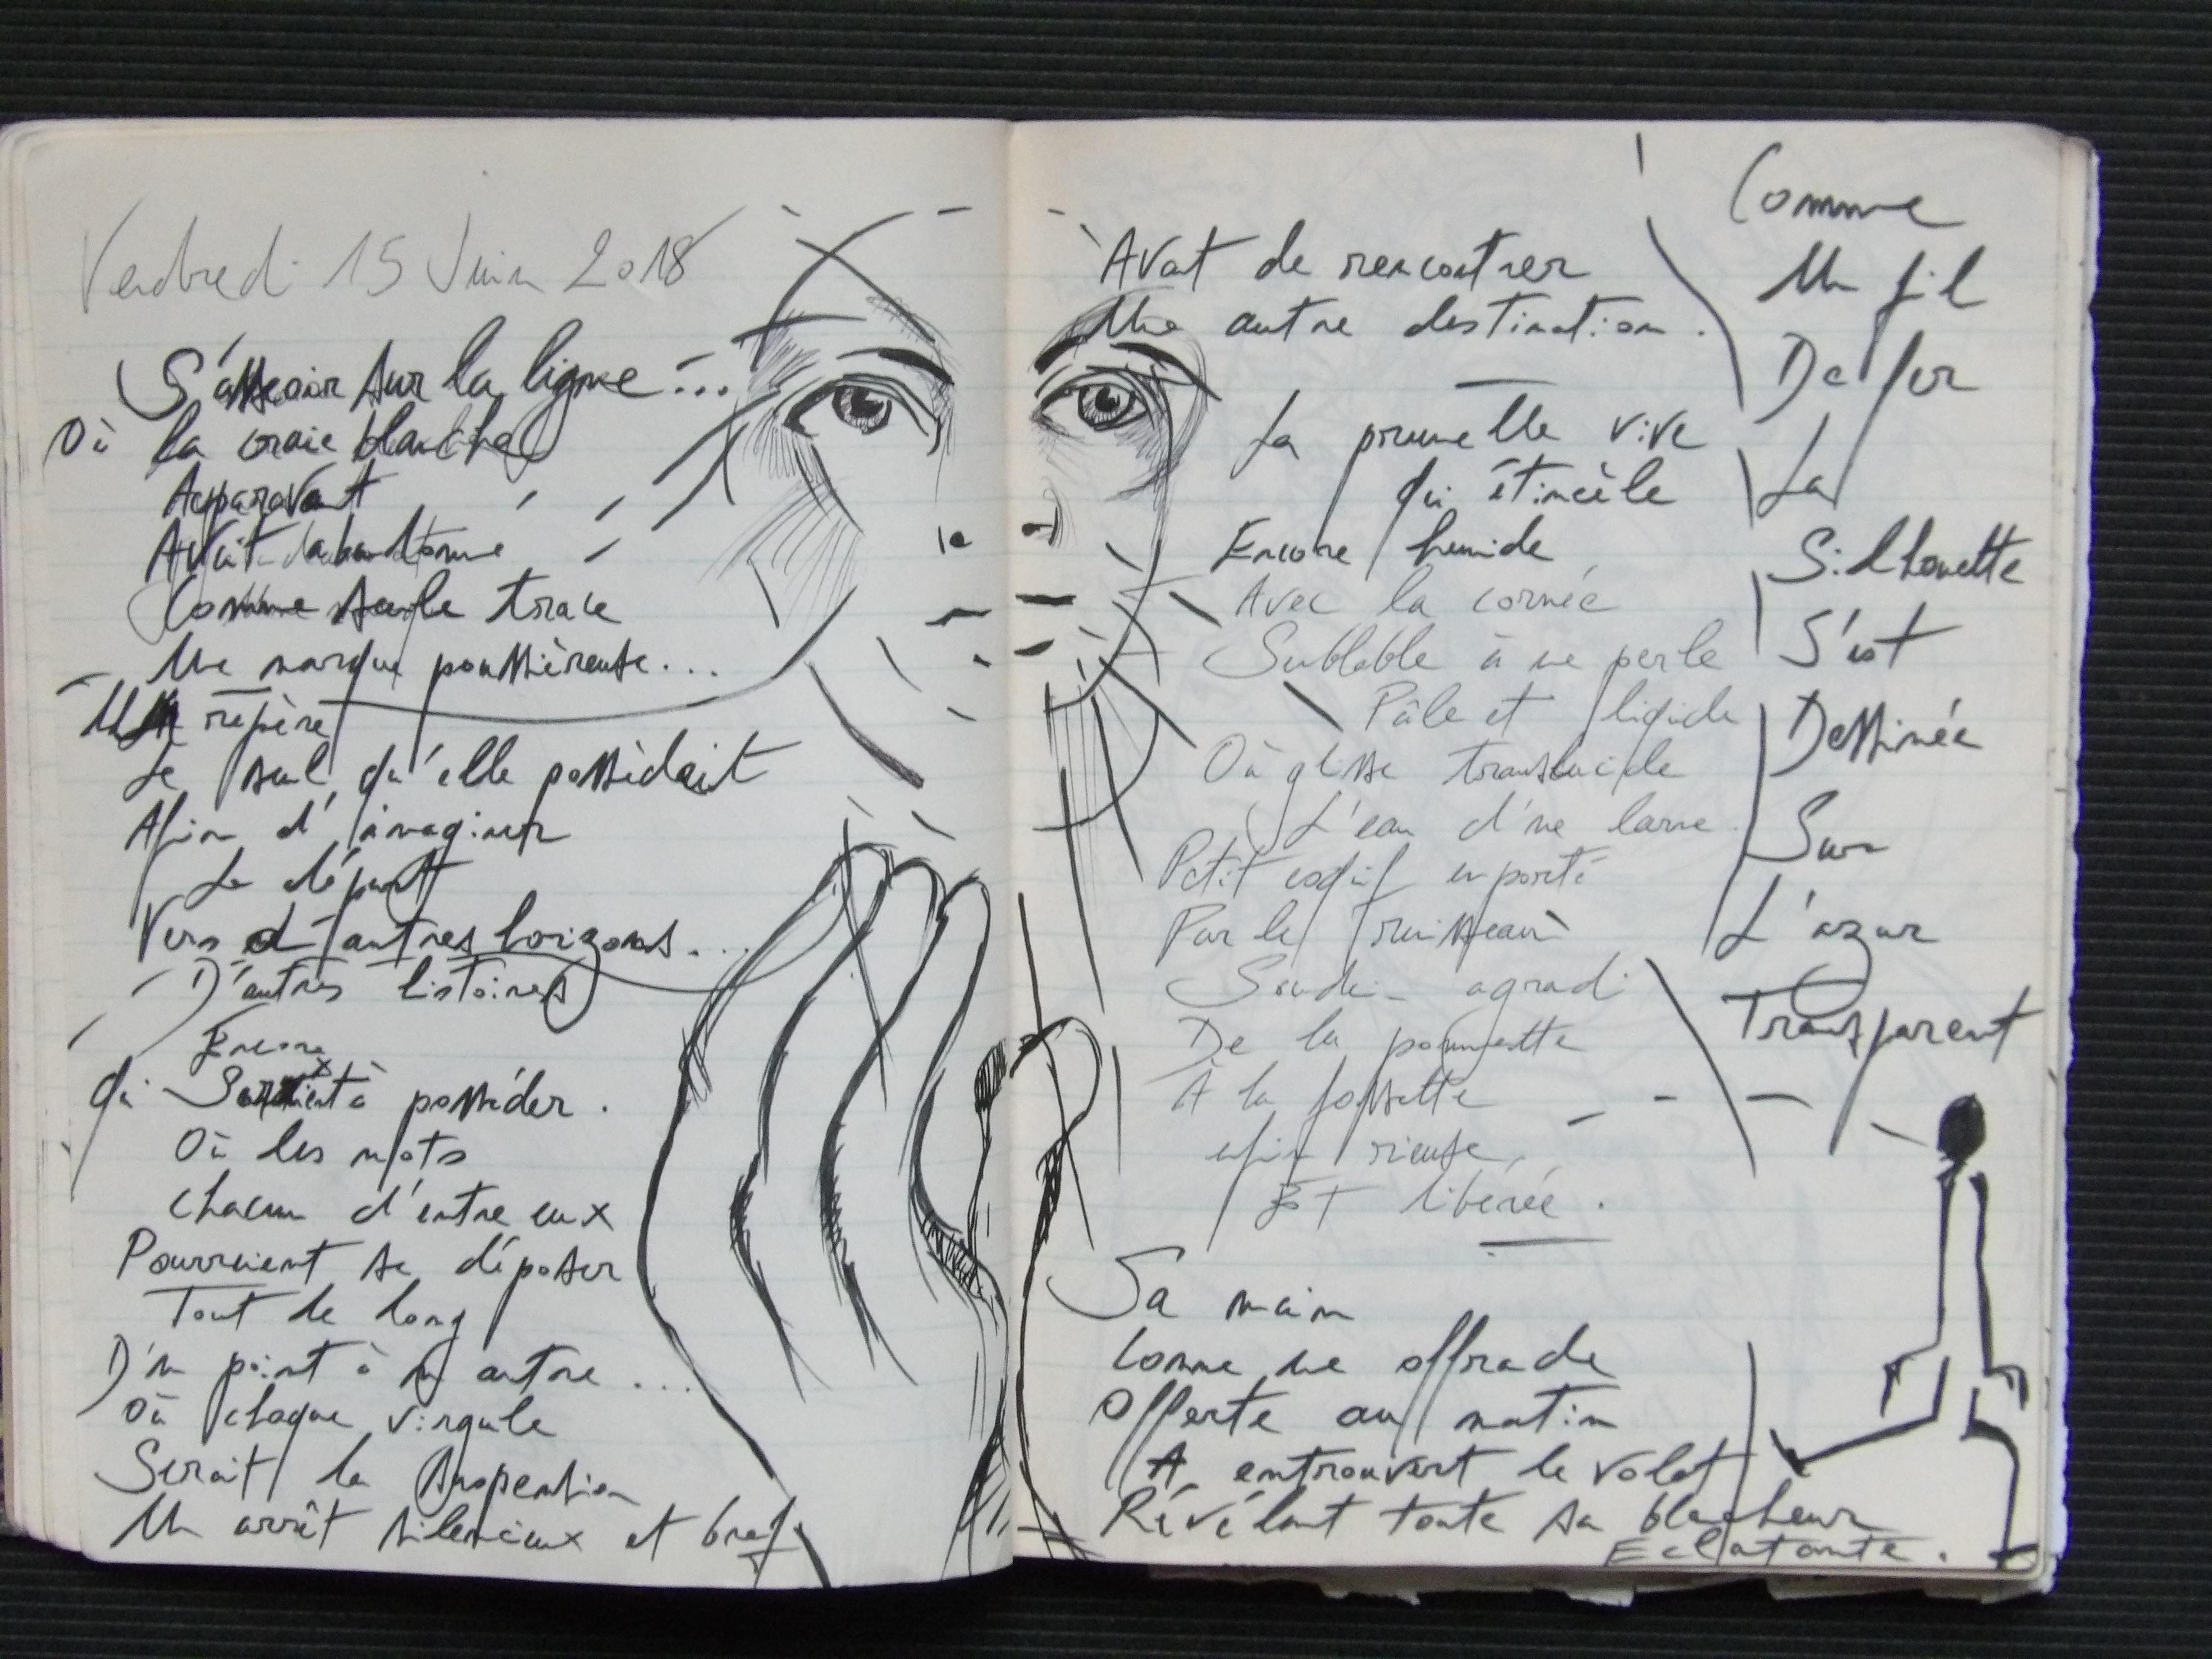 Vendredi 15 Juin 2018
S'asseoir sur la ligne...
Où la craie blanche
Auparavant
Avait abandonné
Comme seule trace
Une marque poussièreuse...
Un repère
Le seul qu'elle possèdait
Afin d'imaginer
Le départ
Vers d'autres horizons...
D'autres histoires
Encore
Qui Seraient à posséder.
Où les mots
chacun d'entre eux
Pourraient se déposer
Tout le long
D'un point à un autre...
Où chaque virgule
Serait la suspension
Un arrêt silencieux et bref,
Avant de rencontrer
Une autre destination.
La prunelle vive
Qui étincèle
Encore humide
Avec la cornée
Semblable à une perle
Pâle et liquide
Où glisse translucide
L'eau d'une larme.
Petit esquif emporté
Par le ruisseau
Soudain agrandi
De la pommette
À la fossette
enfin rieuse,
Est libérée.
Sa main
Comme une offrande
Offerte au matin
A entrouvert le volet
Révélant toute sa blancheur
Eclatante.
Comme
Un fil
De fer
La
Silhouette
S'est
Dessinée
Sur
L'azur
Transparent